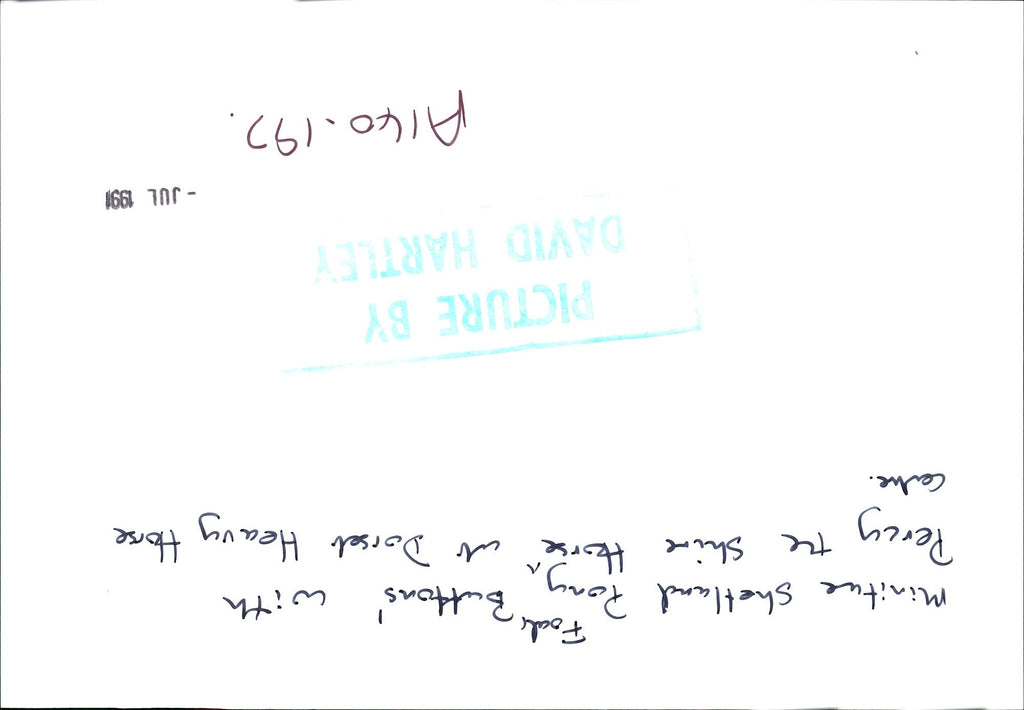 Miniture Shetland Pony Foal, 'Buttons' with
Percy the Shire Horse at Dorset Heavy Horse
Centre.
PICTURE BY
DAVID HARTLEY
- JUL 1991
A140-197.